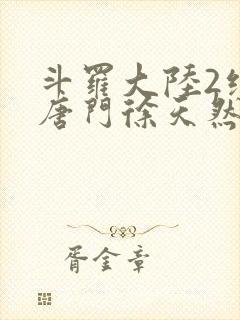 斗羅大陸2絕
唐門徐天然
胥金章